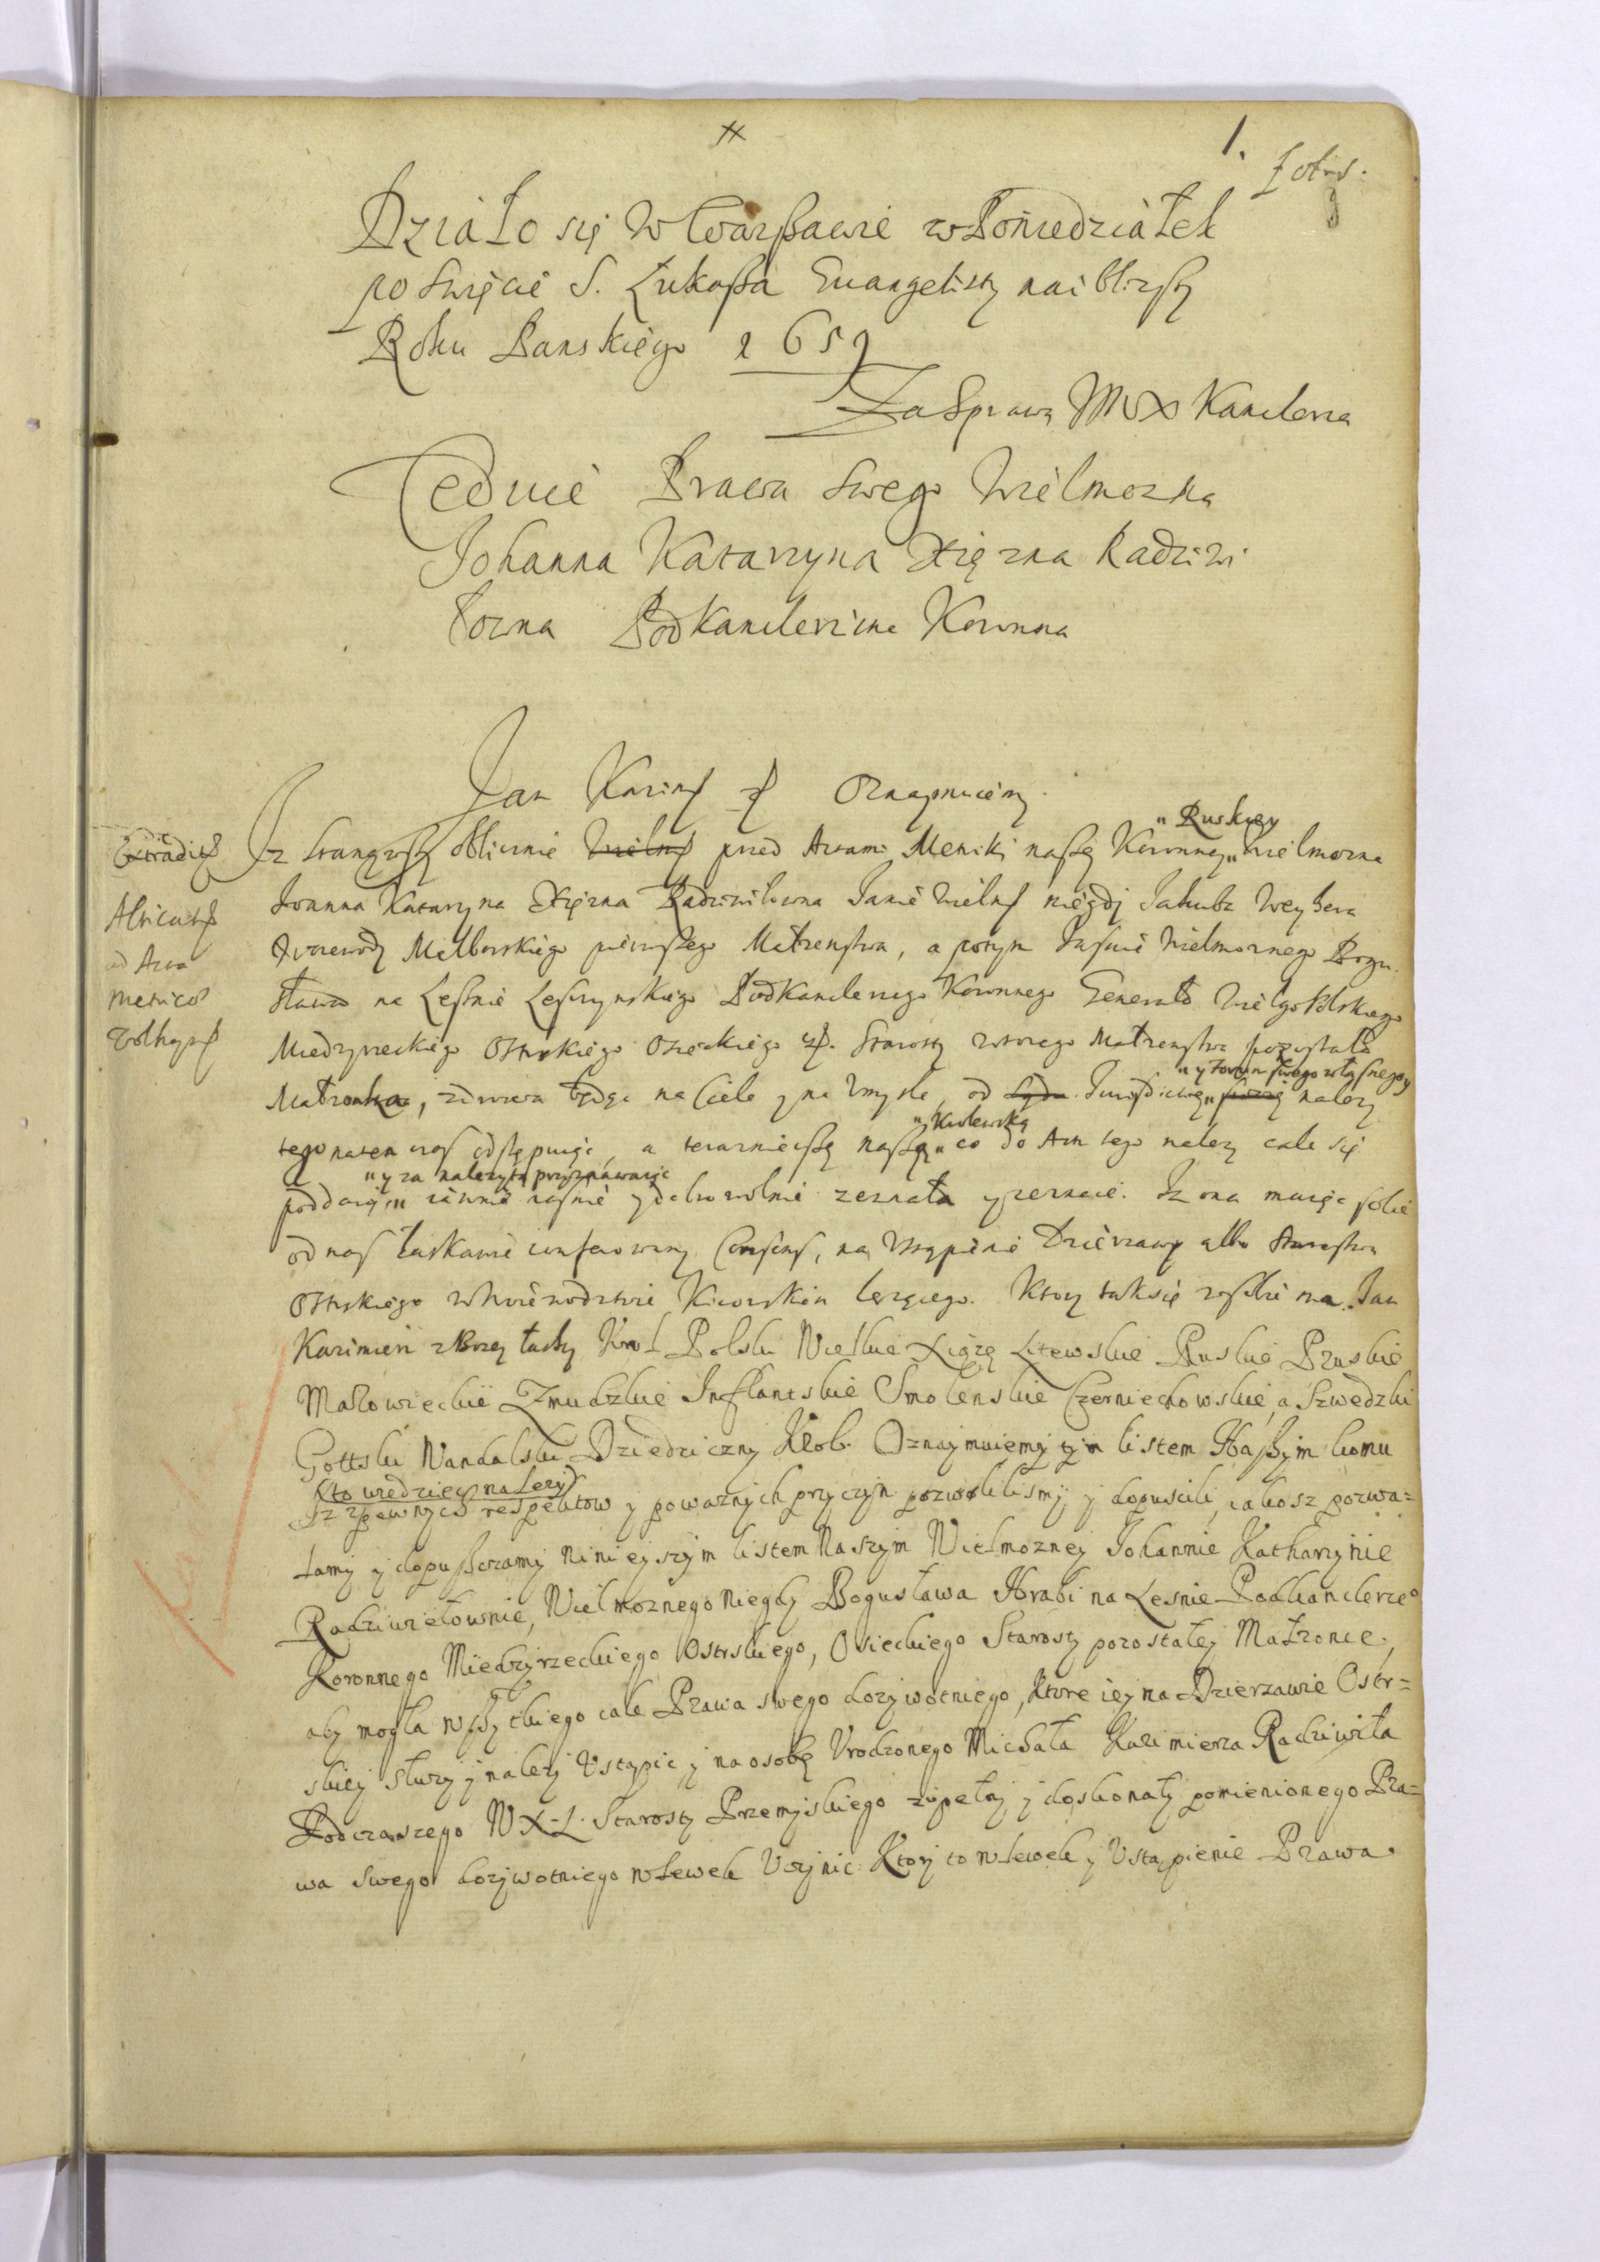 1.
Działo się w Warßawie w Poniedziałek
po Swięcie S. Łukaßa Euangelisty naibliżßy
Roku Panskiego 1659
Za Sprawą Kanclerza
Ceduie Prawa Swego Wielmozna
Johanna Katarzyna Xięzna Radziwi
łowna PodKanclerzina Koronna
Jan Kazimi Oznaymuiemy
Ruskiey
Iz stanąwßy obliznie przed Actami Metriki naßey Koronney wielmozna
Joanna Katarzyna Xięzna Radziwiłowna Jasnie Wielm niegdj Jakuba Weyhera
Woiewody Malborskiego pierwßego Małzenstwa, a potym Jasnie Wielmoznego Bogu
sława na Lesnie Lesczynskiego PodKanclerzego Koronnego Generała Wielgopolskiego
Miedzyrzeckiego Ostrskiego Osieckiego Starosty wtorego Małzenstwa pozostała
y forum swego własnego
Małzonka, zdrowa będąc na Ciele y na Vmysle, od Jurisdictiey nalezy
Krolewską
tego na ten czas odstępuiąc, a teraznieißę naßą co do Actu tego nalezy cale się
y za nalezytą przyznawaiąc
poddaiąc iawnie iasnie y dobrowolnie zeznała y zeznaie. Iz ona maiąc sobie
od nas łaskawie conferowany Consens, na Vstąpienie Dzierzawy albo Starostwa
Ostrskiego w Woiewodztwie Kiiowskim lezącego. Ktory tak się w sobie ma. Jan
Kazimierz z Bozey łaski Krol Polski Wielkie Xiązę Litewskie Ruskie Pruskie
Mazowieckie Zmudzkie Inflantskie Smolenskie Czerniechowskie, a Szwedzki
Gottski Wandalski Dziedziczny Krol. Oznaymuiemy tym listem Naßym komu
to wiedziec nalezy
Iz z pewnych respektow y powaznych przyczyn pozwolilismy y dopuscili, iakosz pozwa=
lamy y dopußczamy ninieyszym listem Naszym Wielmozney Johannie Katharzynie
Radziwiełownie, Wielmoznego niegdy Bogusława Hrabi na Lesnie Podkanclerzego
Koronnego Miedzyrzeckiego Ostrskiego, Osieckiego Starosty pozostałey Małzonce,
aby mogła wßytkiego cale Prawa swego dozywotniego, ktore iey na Dzierzawie Ostr=
skiey słuzy y nalezy Vstąpic y na osobę Vrodzonego Michała Kazimierza Radziwiła
Podczaszego W.X.L. Starosty Przemyskiego zupełny y doskonały pomienionego Pra=
wa swego dozywotniego wlewek Vczynic. Ktory to wlewek y Vstąpienie Prawa